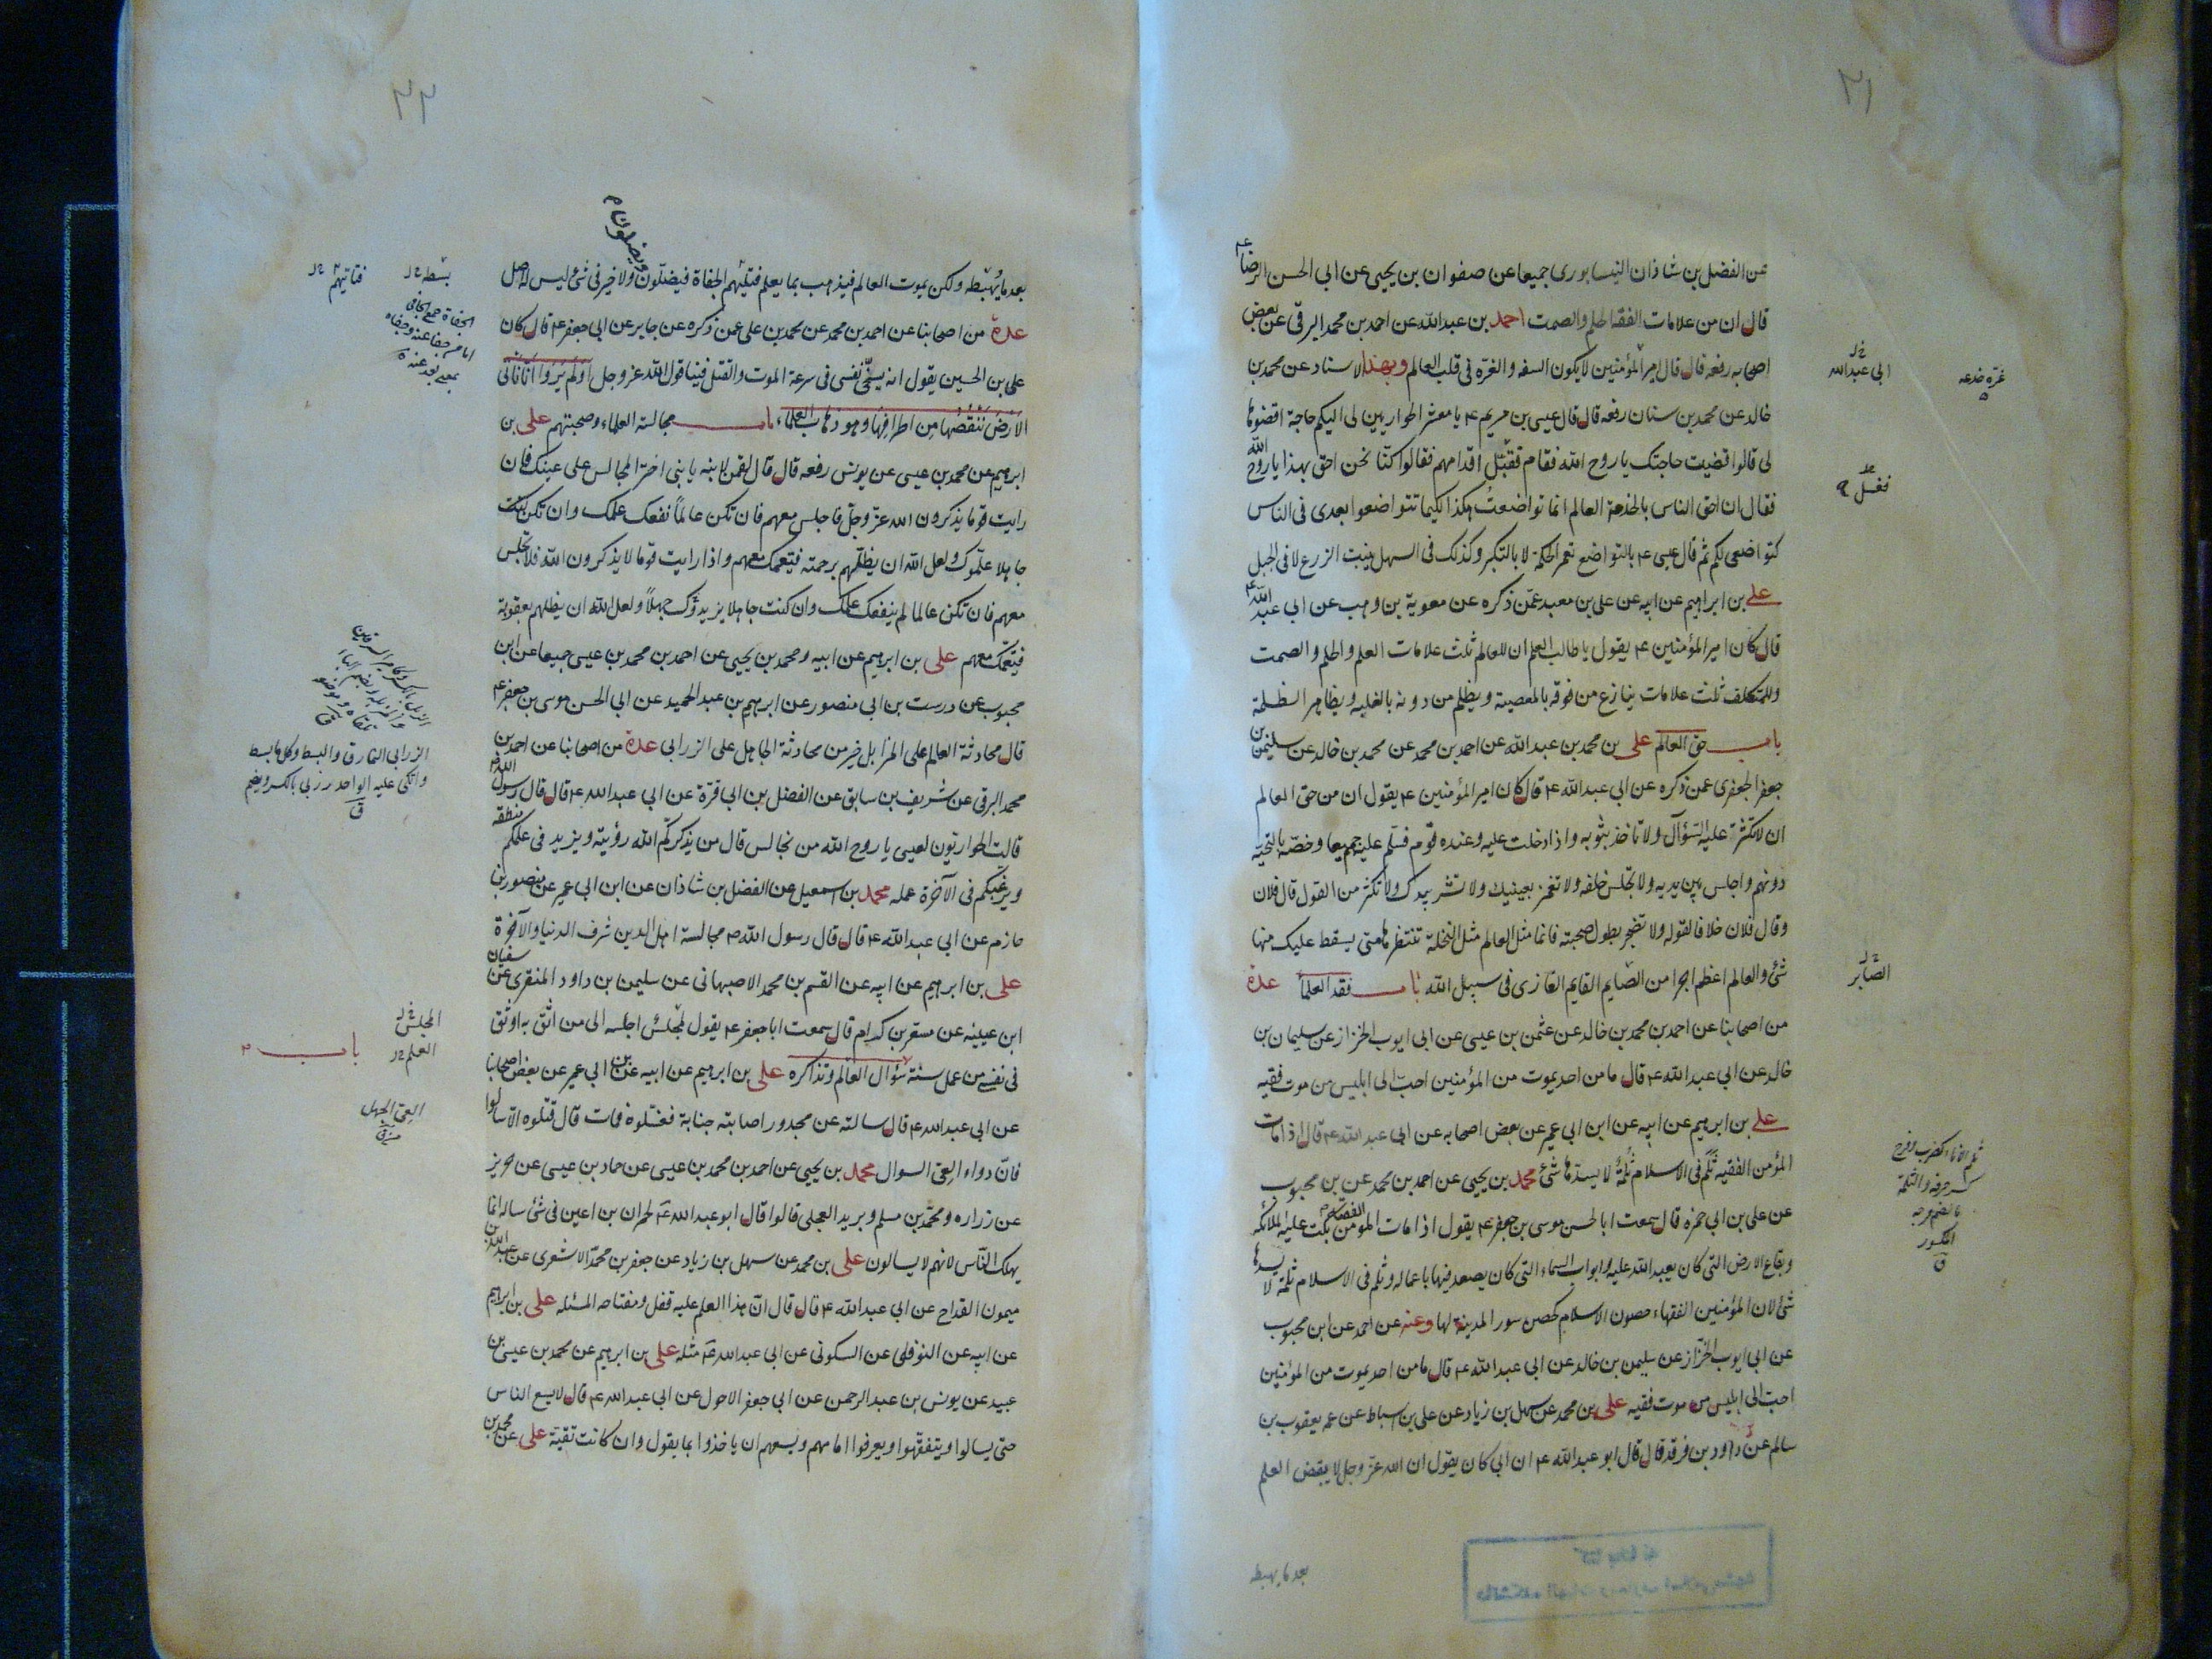 ٢١
عن الفضل بن شاذان النيسابوري جميعا عن صفوان بن يحيى عن ابي الحسن الرضا ع
قال ان من علامات الفقه الحلم والصمت احمد بن عبدالله عن احمد بن محمد البرقي عن بعض
اصحابه رفعه قال قال امير المؤمنين لا يكون السفه والغرّه في قلب العالم وبهذا الاسناد عن محمد بن
خالد عن محمد بن سنان رفعه قال قال عيسى بن مريم ع يا معشر الحواريين لي اليكم حاجة اقضوها
لي قالوا قضيت حاجتك يا روح الله فقام فقبّل اقدامهم فقالوا كنّا نحن احق بهذا يا روح الله
فقال ان احق الناس بالخدمة العالم انما تواضعتُ هكذا لكيما تتواضعوا بعدي في الناس
كتواضعي لكم ثم قال عيسى ع بالتواضع تعمر الحكمة لا بالتكبر وكذلك في السهل ينبت الزرع لا في الجبل
علي بن ابراهيم عن ابيه عن علي بن معبد عمّن ذكره عن معوية بن وهب عن ابي عبد الله ع
قال كان امير المؤمنين ع يقول يا طالب العلم ان للعالم ثلث علامات العلم والحلم والصمت
وللمتكلف ثلث علامات ينازع من فوقه بالمعصية ويظلم من دونه بالغلبه ويظاهر الظلمة
باب حق العالم علي بن محمد بن عبدالله عن احمد بن محمد عن محمد بن خالد عن سليمن بن
جعفر الجعفري عمن ذكره عن ابي عبدالله ع قال كان امير المؤمنين ع يقول ان من حق العالم
ان لا تكثر عليه السّؤال ولا تاخذ بثوبه واذا دخلت عليه وعنده قوم فسلّم عليهم جميعا وخصّه بالتحيّة
دونهم واجلس بين يديه ولا تجلس خلفه ولا تغمز بعينيك ولا تشر بيدك ولا تكثر من القول قال فلان
وقال فلان خلافا لقوله ولا تضجر بطول صحبته فانما مثل العالم مثل النخلة تنتظرها متى يسقط عليك منها
شئ والعالم اعظم اجرا من الصّايم القايم الغازي في سبيل الله باب فقد العلماء عدة
من اصحابنا عن احمد بن محمد بن خالد عن عثمن بن عيسى عن ابي ايوب الخزاز عن سليمان بن
خالد عن ابي عبدالله ع قال ما من احد يموت من المؤمنين احبّ الى ابليس من موت فقيه
علي بن ابرهيم عن ابيه عن ابن ابي عمير عن بعض اصحابه عن ابي عبدالله ع قال اذا مات
المؤمن الفقيه ثَلَم في الاسلام ثُلمةٌ لا يسدّها شئ محمد بن يحيى عن احمد بن محمد عن بن محبوب
عن علي بن ابي حمزه قال سمعت ابا الحسن موسى بن جعفر ع يقول اذا مات المؤمن الفقيه بكت عليه الملائكه
وبقاع الارض التي كان يعبد الله عليه وابواب السماء التي كان يصعد فيها باعماله وثلم في الاسلام ثلمة لا يسدها
شئ لان المؤمنين الفقهاء حصون الاسلام كحصن سور المدينة لها وعنه عن احمد عن ابن محبوب
عن ابي ايوب الخزّاز عن سليمن بن خالد عن ابي عبد الله ع قال ما من احد يموت من المؤمنين
احب الى ابليس من موت فقيه علي بن محمد عن سهل بن زياد عن علي بن اسباط عن عمه يعقوب بن
سالم عن داود بن فرقد قال قال ابو عبد الله ع ان ابي كان يقول ان الله عزّ وجل لا يقبض العلم
بعد ما يهبطه
ابي عبدالله
غرّه خدعه
فغسل
الصّابر
٢٢
بعد ما يُهبّطه ولكن يموت العالم فيذهب بما يعلم فتليهم الجفاة فيضلّون ويضلون ولا خير في شئ ليس له اصل
عدة من اصحابنا عن احمد بن محمد عن محمد بن علي عمن ذكره عن جابر عن ابي جعفر ع قال كان
علي بن الحسين يقول انه يسخّي نفسي في سرعة الموت والقتل فينا قول الله عز وجل اولم يروا انا ناتي
الارض ننقصها من اطرافها وهو ذهاب العلماء باب مجالسة العلماء وصحبتهم علي بن
ابرهيم عن محمد بن عيسى عن يونس رفعه قال قال لقمن لابنه يا بني اختر المجالس على عينك فان
رايت قوما يذكرون الله عزّ وجلّ فاجلس معهم فان تكن عالماً نفعك علمك وان تكن
جاهلا علّموك ولعل الله ان يظلّهم برحمته فيعمّك معهم واذا رايت قوما لا يذكرون الله فلا تجلس
معهم فان تكن عالما لم ينفعك علمك وان كنت جاهلا يزيدوك جهلاً ولعل الله ان يظلهم بعقوبة
فيعمّك معهم علي بن ابرهيم عن ابيه ومحمد بن يحيى عن احمد بن محمد بن عيسى جميعا عن ابن
محبوب عن درست بن ابي منصور عن ابرهيم بن عبد الحميد عن ابي الحسن موسى بن جعفر ع
قال محادثة العالم على المزابل خير من محادثة الجاهل على الزرابي عدة من اصحابنا عن احمد بن
محمد البرقي عن شريف بن سابق عن الفضل بن ابي قرّة عن ابي عبدالله ع قال قال رسول الله ص
قالت الحواريون لعيسى يا روح الله من نجالس قال من يذكركم الله رؤيته ويزيد في علمكم منطقه
ويرغّبكم في الآخرة عمله محمد بن اسمعيل عن الفضل بن شاذان عن ابن ابي عمير عن منصور بن
حازم عن ابي عبد الله ع قال قال رسول الله ص مجالسة اهل الدين شرف الدنيا والآخرة
علي بن ابرهيم عن ابيه عن القسم بن محمد الاصبهاني عن سليمن بن داود المنقري عن سفيان
ابن عيينه عن مسعر بن كدام قال سمعت ابا جعفر ع يقول لمجلس اجلسه الى من اثق به اوثق
في نفسي من عمل سنة سؤال العالم وتذاكره علي بن ابرهيم عن ابيه عن بن ابي عمير عن بعض اصحابنا
عن ابي عبدالله ع قال سالته عن مجدور اصابته جنابة فغسّلوه فمات قال قتلوه الّا سالوا
فانّ دواء العيّ السوال محمد بن يحيى عن احمد بن محمد بن عيسى عن حماد بن عيسى عن حريز
عن زراره ومحمّد بن مسلم وبريد العجلي قالوا قال ابو عبدالله ع لحمران بن اعين في شئ ساله انما
يهلك النّاس لانهم لا يسالون علي بن محمد عن سهل بن زياد عن جعفر بن محمّد الاشعري عن عبد الله بن
ميمون القداح عن ابي عبد الله ع قال قال انّ هذا العلم عليه قفل ومفتاحه المسئله علي بن ابراهيم
عن ابيه عن النوفلي عن السكوني عن ابي عبدالله ع مثله علي بن ابرهيم عن محمد بن عيسى بن
عبيد عن يونس بن عبد الرحمن عن ابي جعفر الاحول عن ابي عبدالله ع قال لا يسع الناس
حتى يسالوا ويتفقّهوا ويعرفوا امامهم ويسعهم ان ياخذوا بما يقول وان كانت تقيّة علي عن محمد بن
الزرابي النمارق والبسط وكل ما بسط
واتكي عليه الواحد زربي بالكسر ويضم
ق
المجلس
العلم
باب
العيّ الجهل